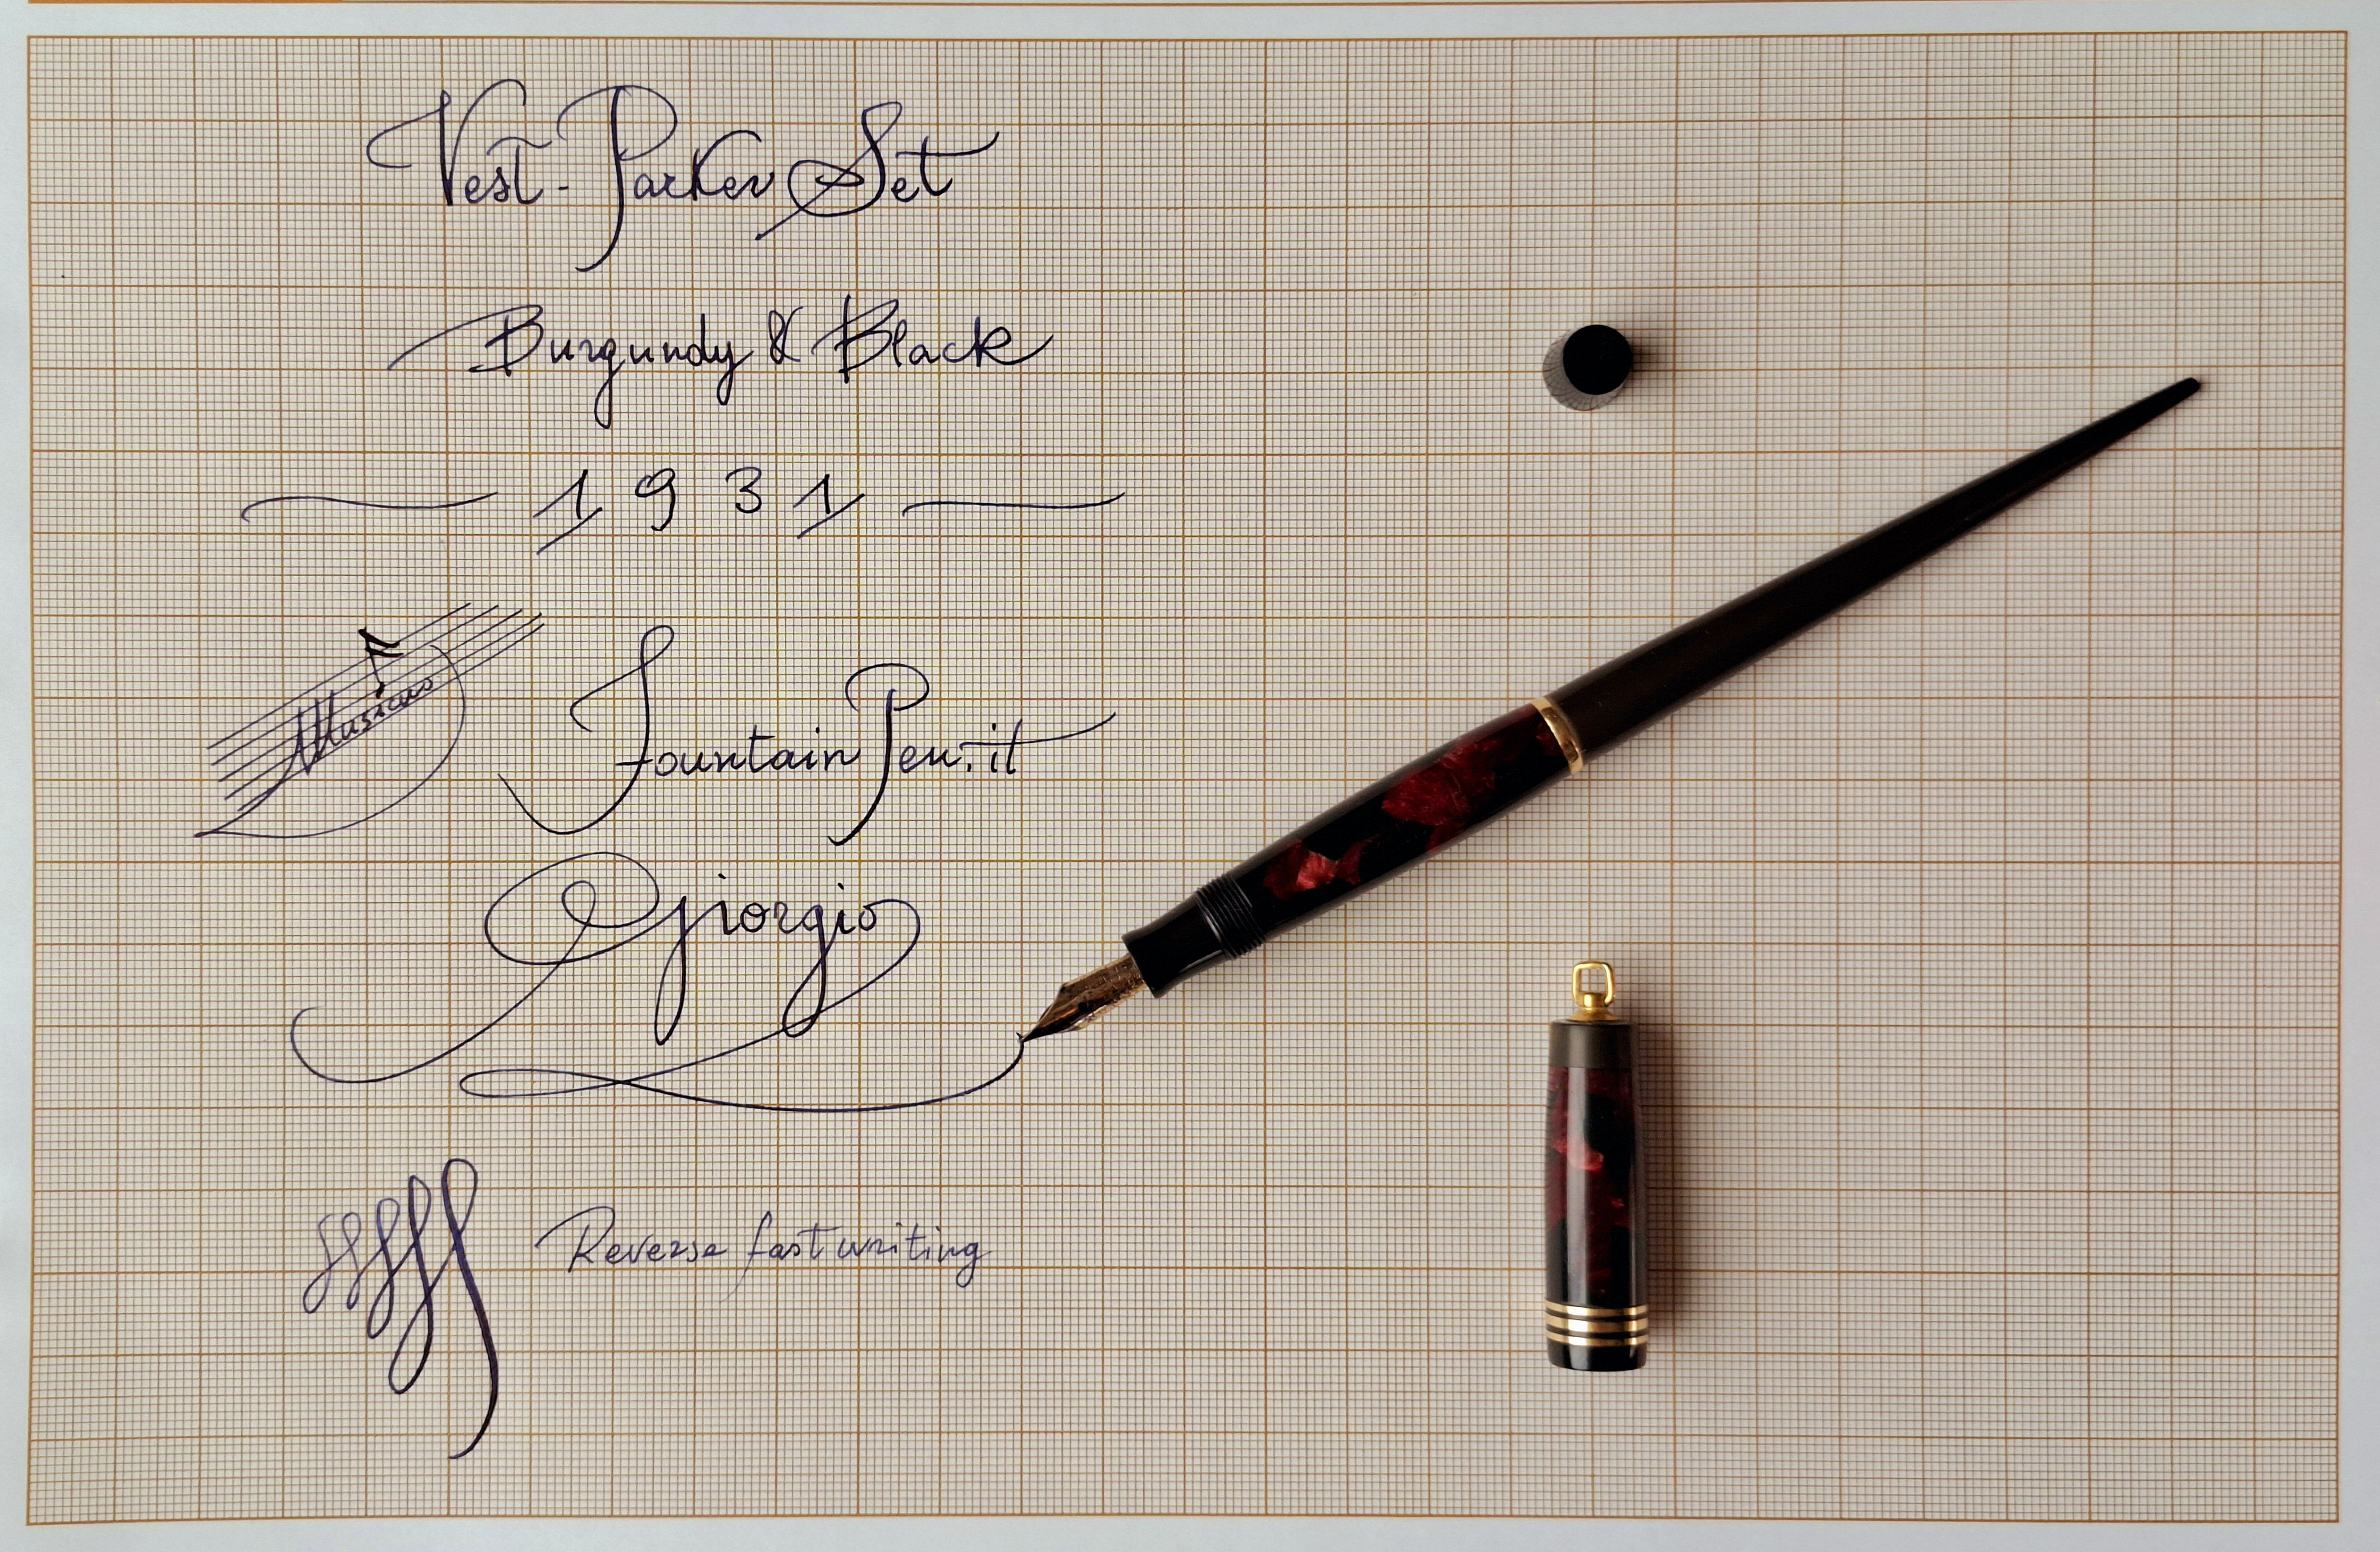 Vest-Parker Set
Burgundy & Black
1931
Musicus
FountainPen.it
Giorgio
Reverse fast writing